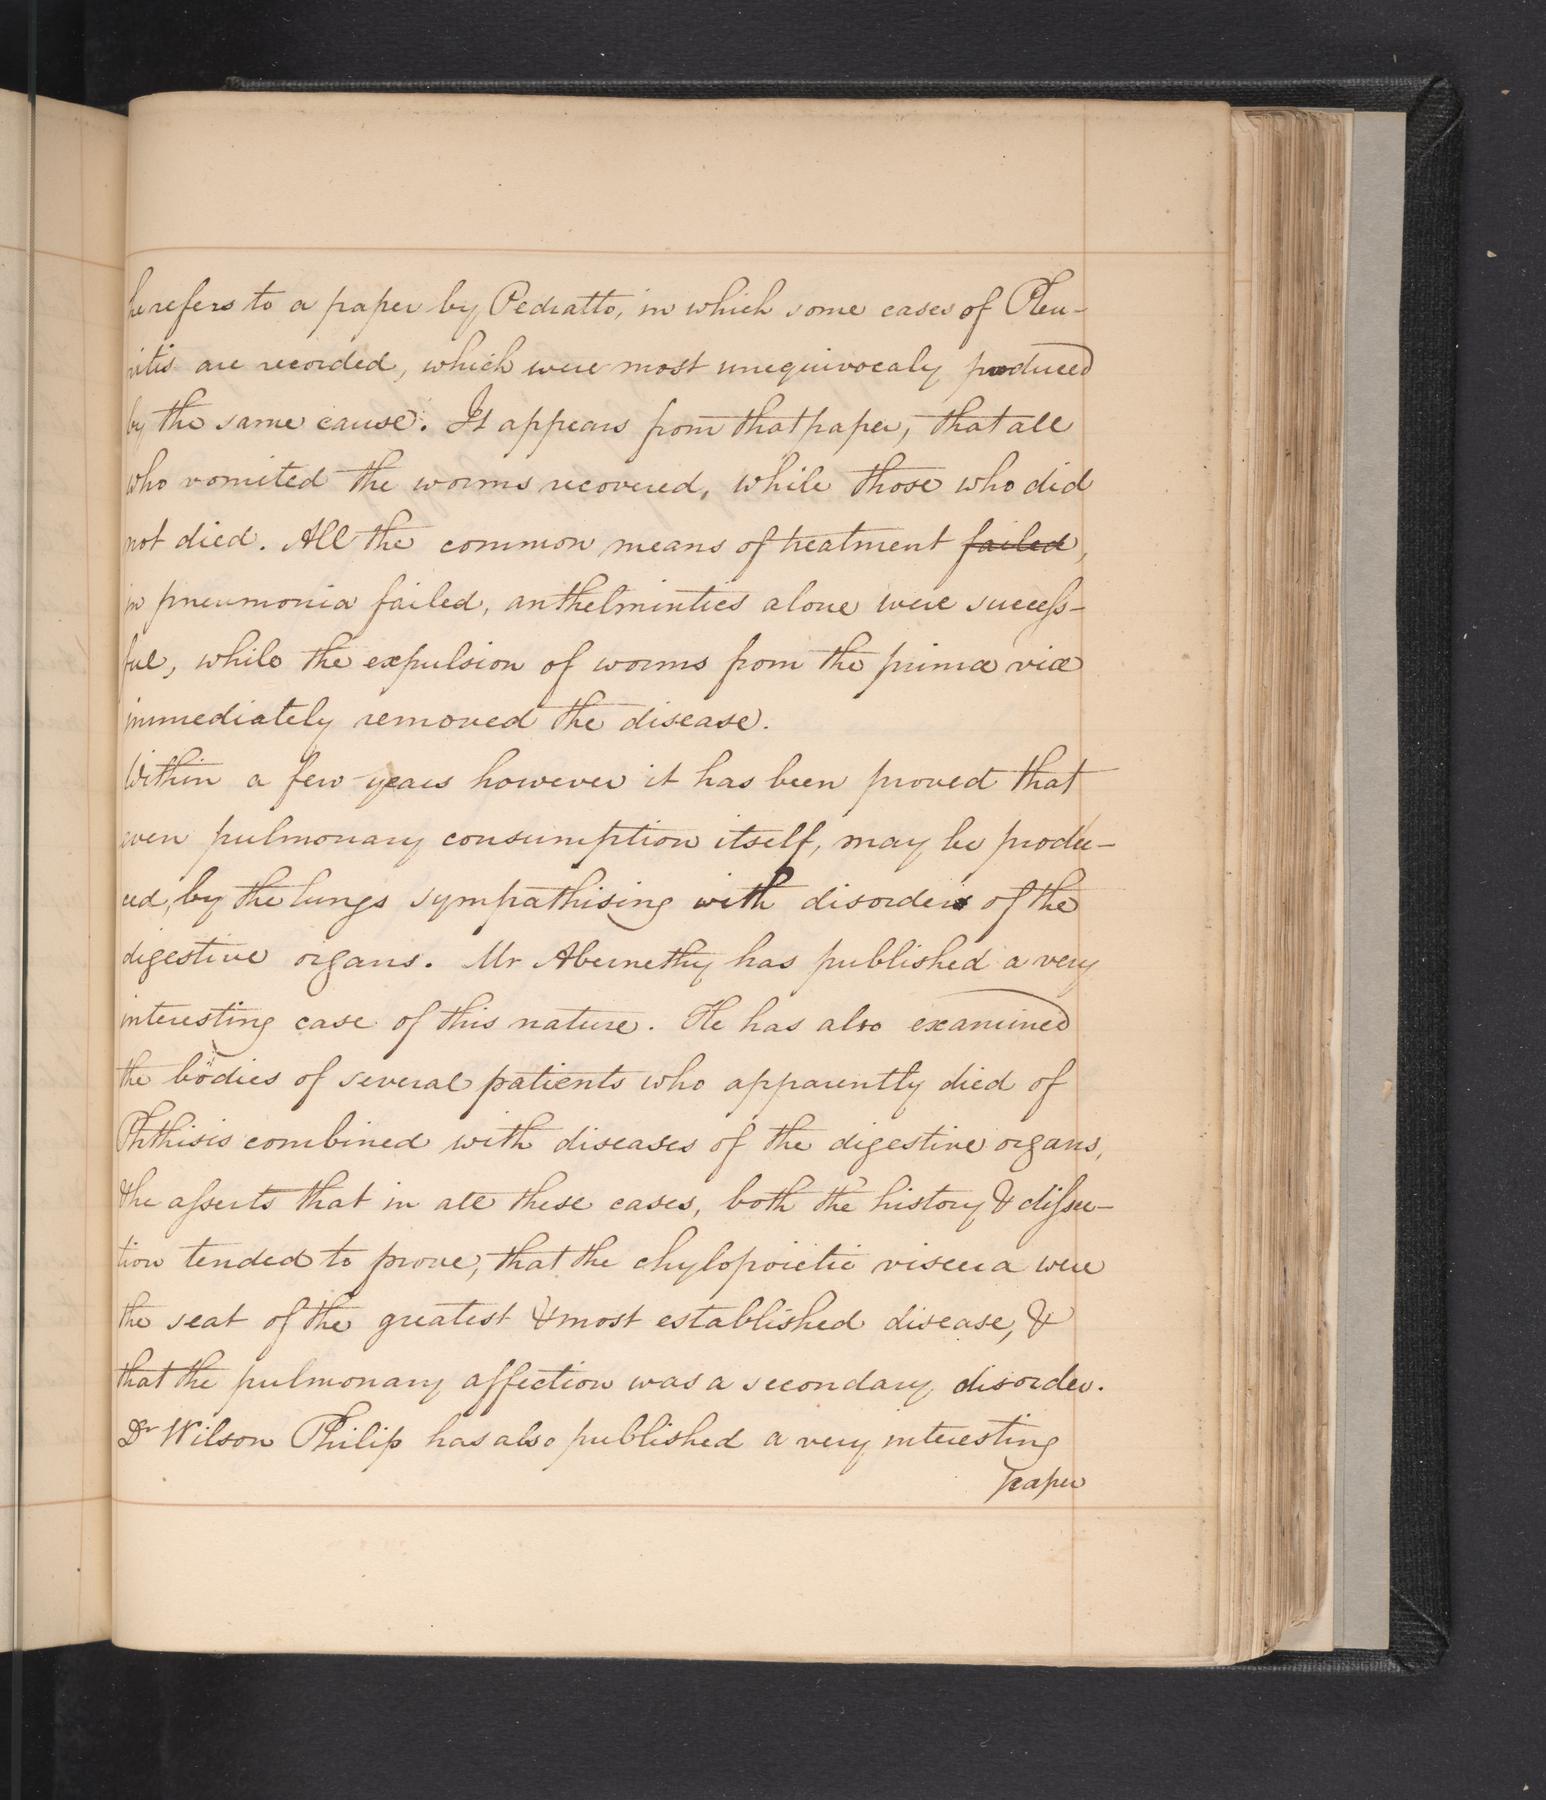 he refers to a paper by Pedratto, in which some cases of Pleu-
ritis are recorded, which were most unequivocaly produced
by the same cause. It appears from that paper, that all
who vomited the worms recovered, while those who did
not died. All the common means of treatment failed,
in pneumonia failed, anthelmintics alone were success-
ful, while the expulsion of worms from the primæ viæ
immediately removed the disease.
Within a few years however it has been proved that
even pulmonary consumption itself, may be produ-
ced, by the lungs sympathising with disorders of the
digestive organs. Mr Abernethy has published a very
interesting case of this nature. He has also examined
the bodies of several patients who apparently died of
Phthisis combined with diseases of the digestive organs,
& he asserts that in all these cases, both the history & dissec-
tion tended to prove, that the chylopoietic viscera were
the seat of the greatest & most established disease, &
that the pulmonary affection was a secondary disorder.
Dr Wilson Philip has also published a very interesting
paper